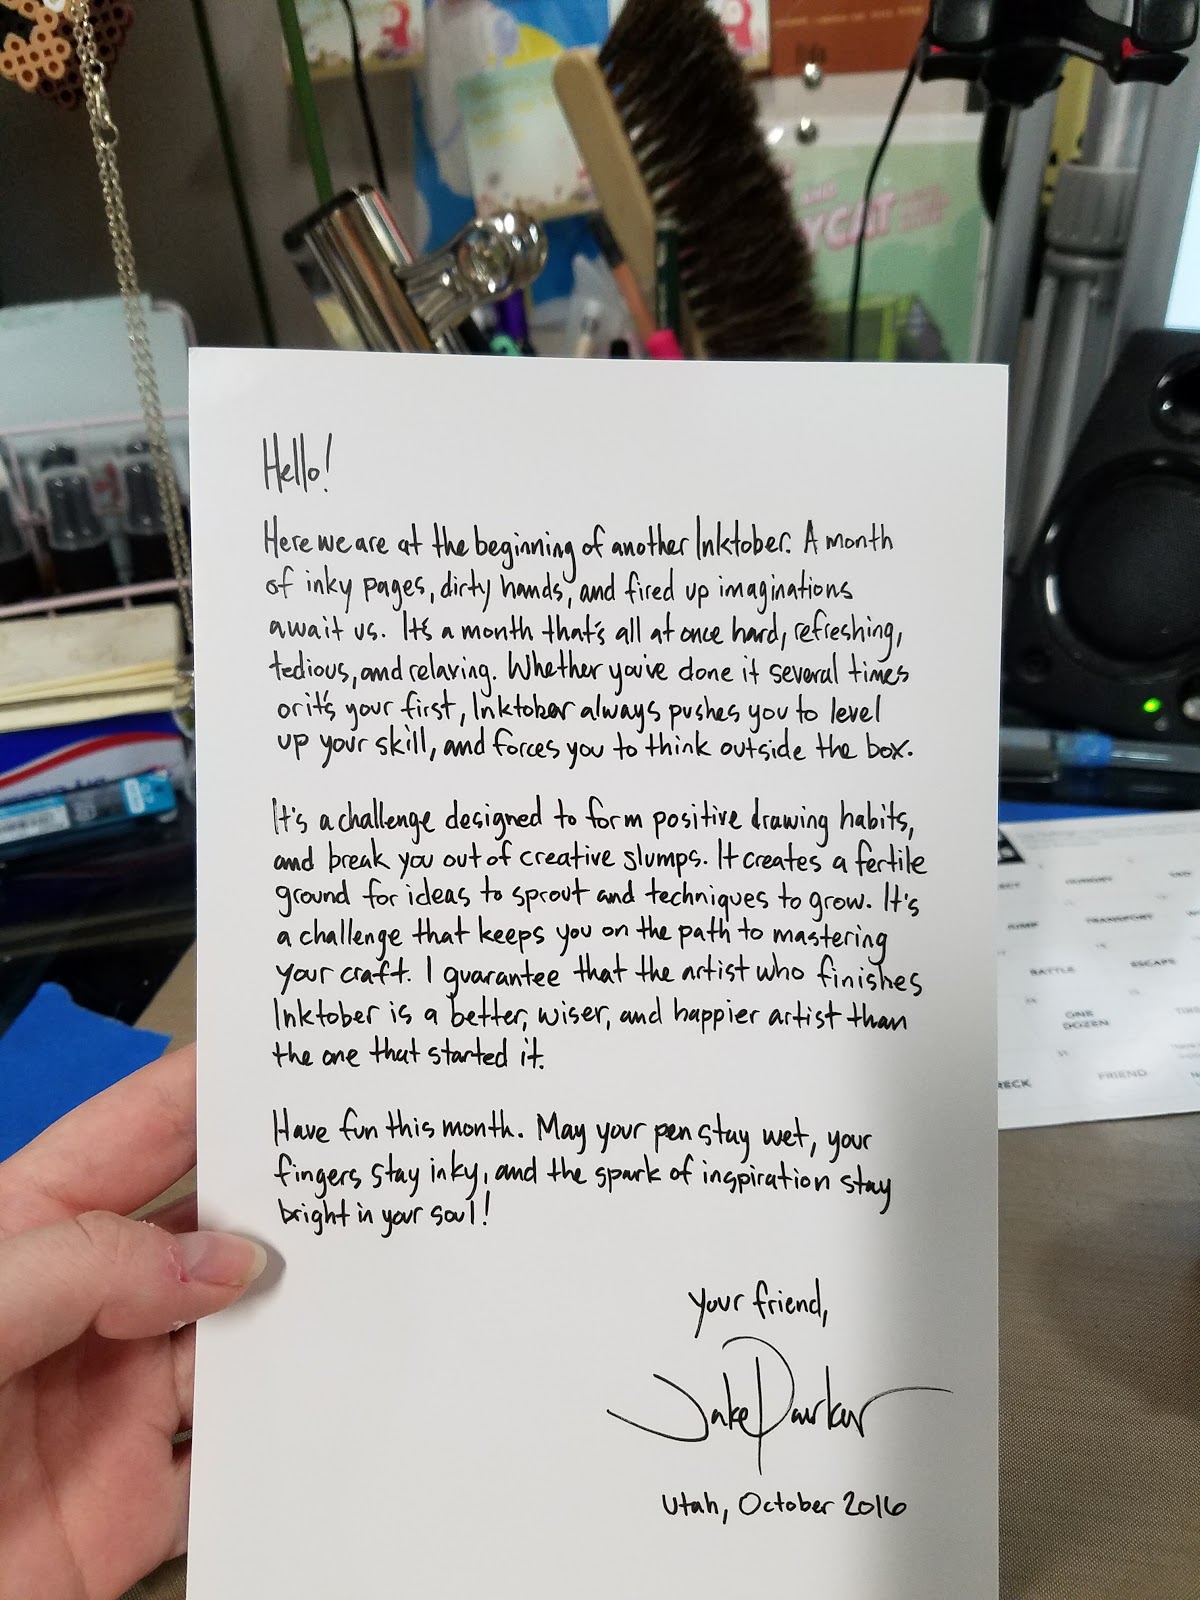 Hello!
Here we are at the beginning of another Inktober. A month
of inky pages, dirty hands, and fired up imaginations
await us. It's a month that's all at once hard, refreshing,
tedious, and relaxing. Whether you've done it several times
or it's your first, Inktober always pushes you to level
up your skill, and forces you to think outside the box.
It's a challenge designed to form positive drawing habits,
and break you out of creative slumps. It creates a fertile
ground for ideas to sprout and techniques to grow. It's
a challenge that keeps you on the path to mastering
your craft. I guarantee that the artist who finishes
Inktober is a better, wiser, and happier artist than
the one that started it.
Have fun this month. May your pen stay wet, your
fingers stay inky, and the spark of inspiration stay
bright in your soul!
Your friend,
Jake Parker
Utah, October 2016
HUNGRY
JUMP TRANSPORT
BATTLE ESCAPE
ONE
DOZEN
FRIEND